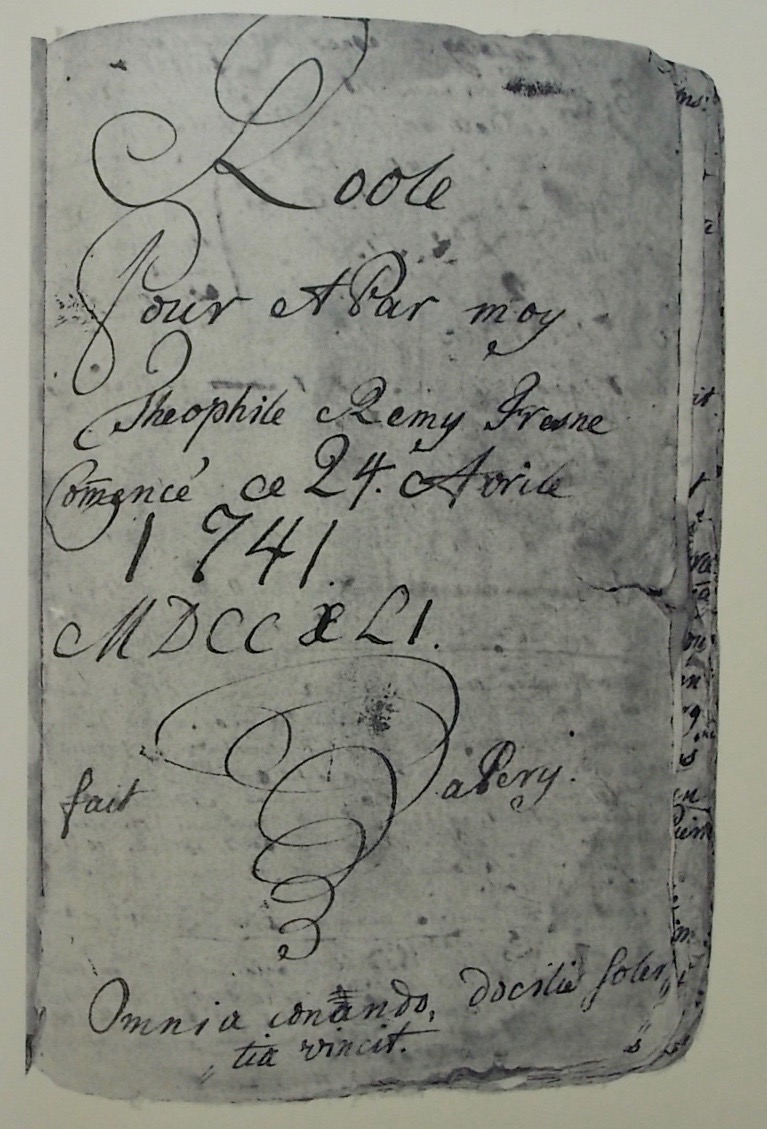 Roole
Pour et Par moy
Theophile Remy Fresne
Com̅encé ce 24. Avrile
1741.
MDCCXLI.
fait a Pery.
Omnia conando, docilis soler„
„tia vincit.